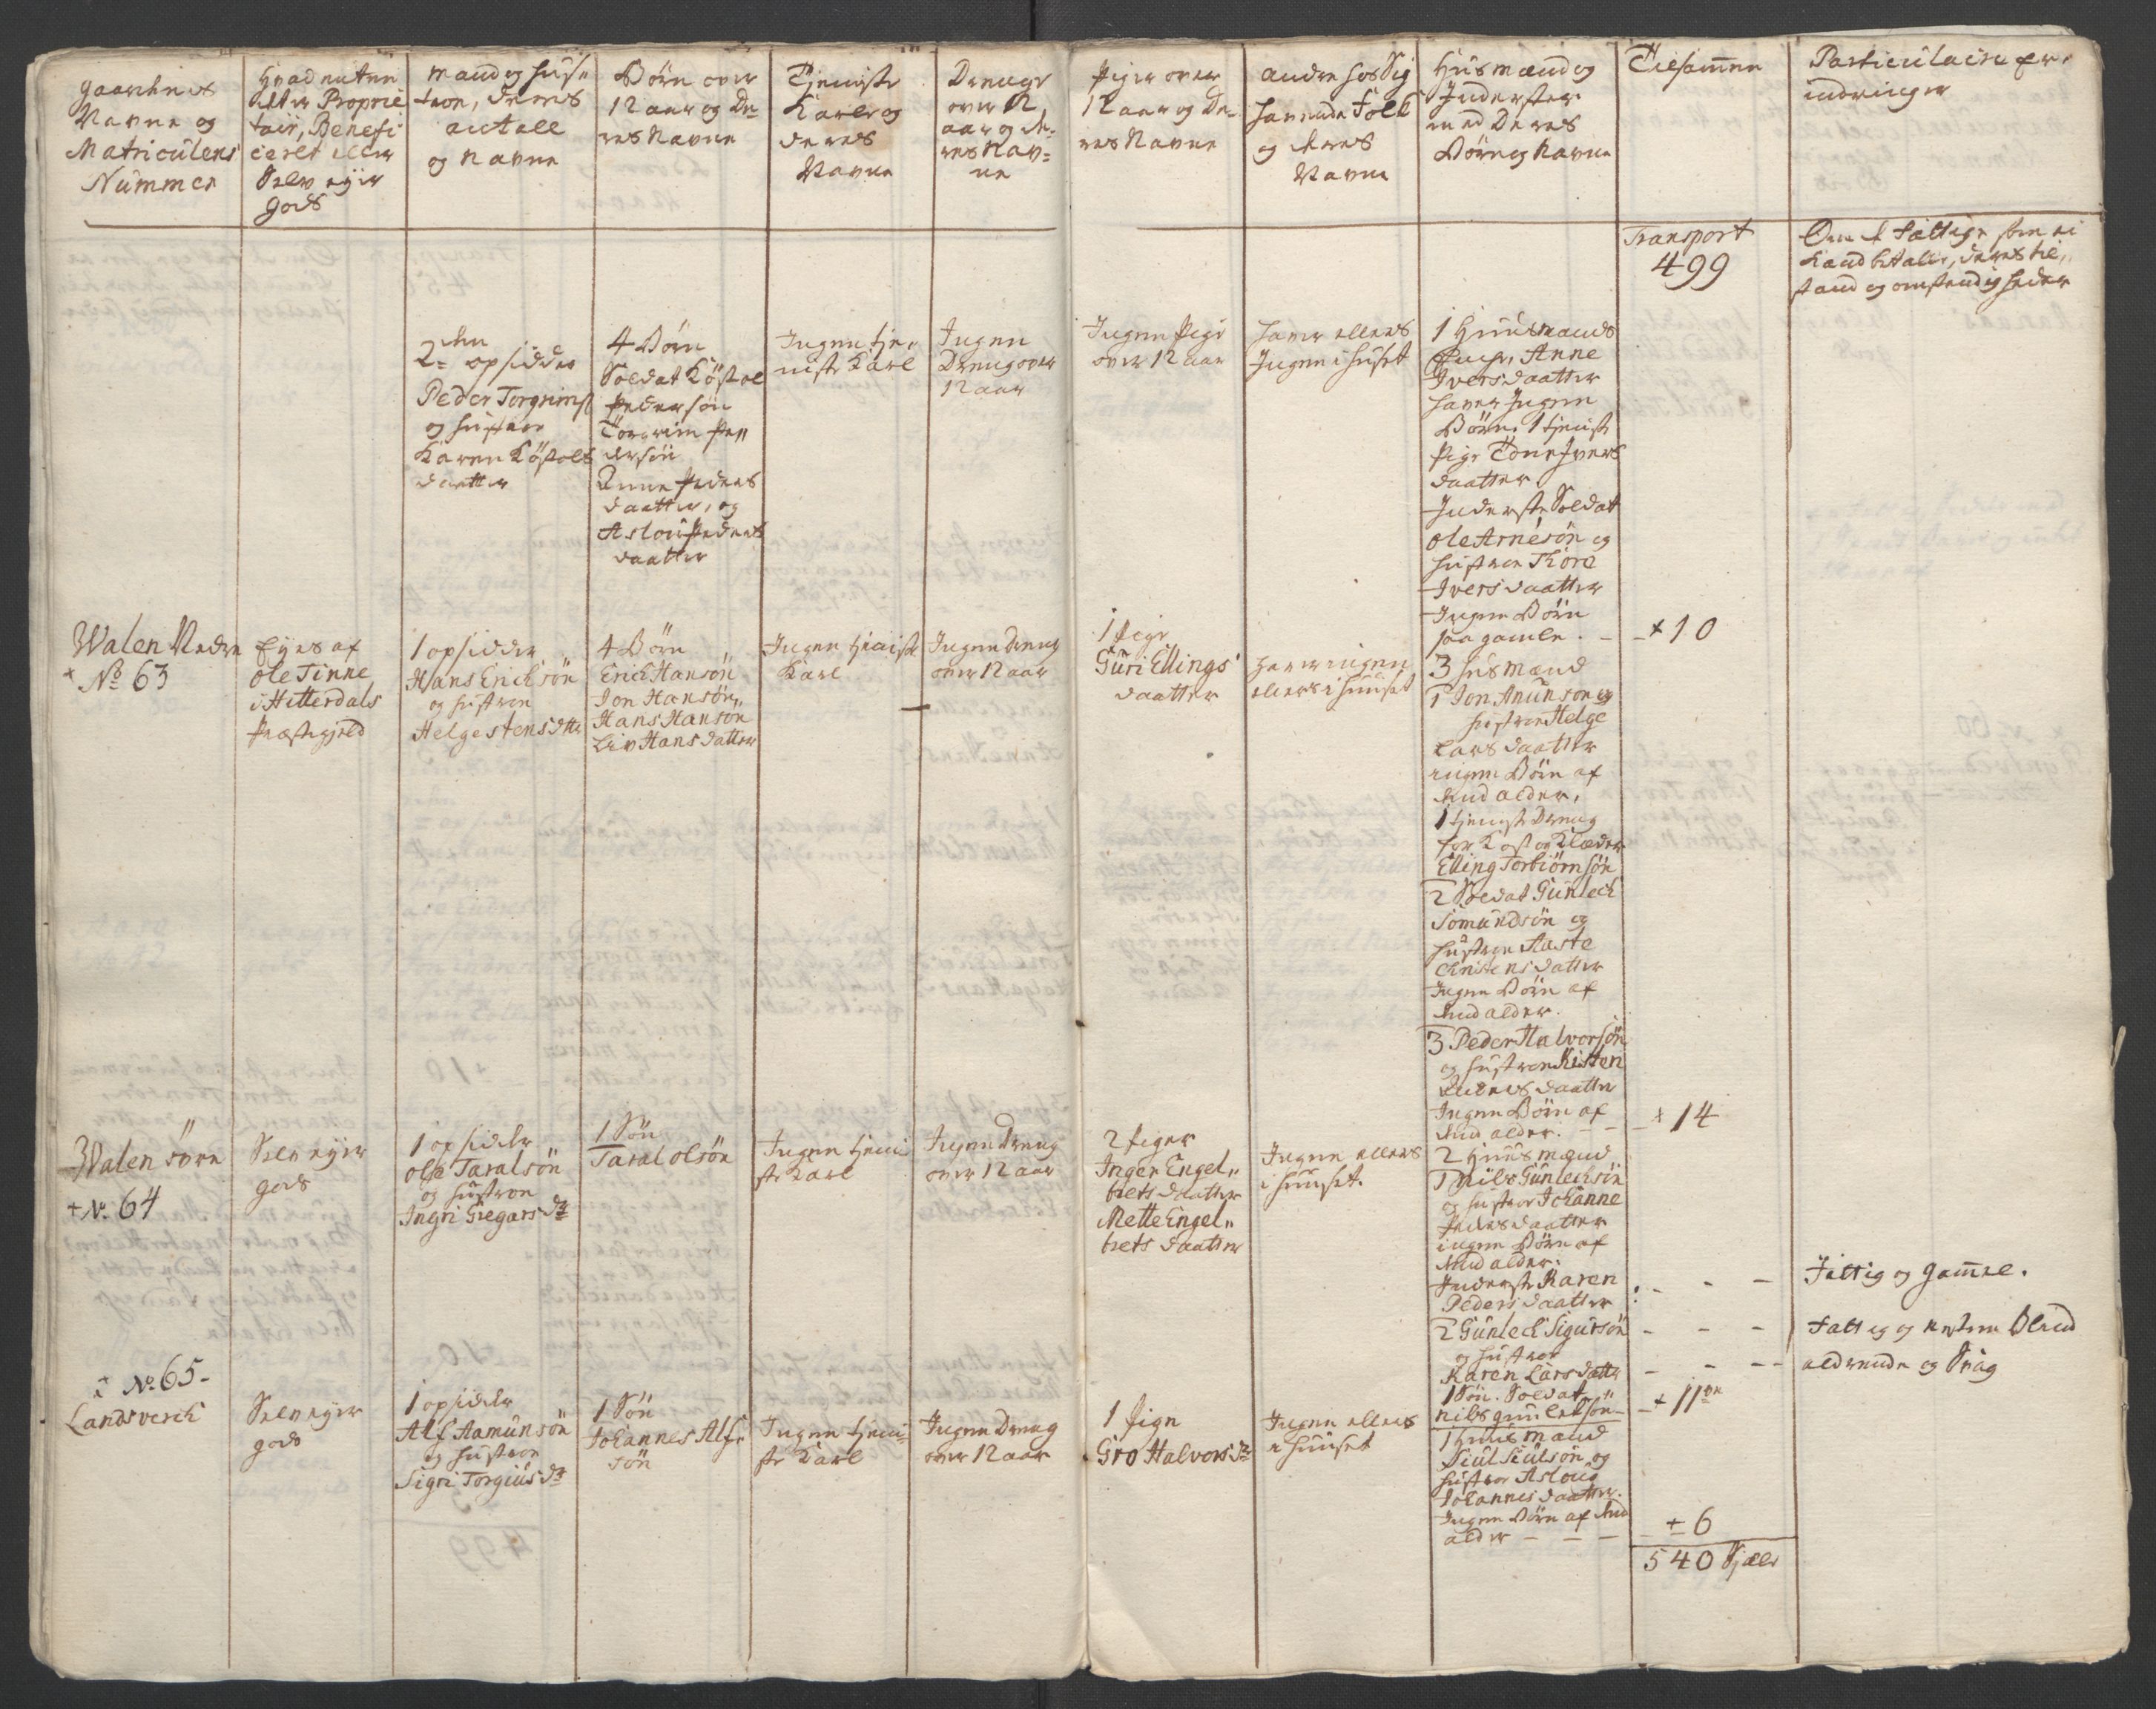 gaardenes
Navne og
Matriculens
Nummer
Hvad enten
det er Proprie
tair, Benefi
ceret eller
Selv eyer
gods
mand og hust
troe, deres
antall
og Navne
Børn over
12 aar og De=
res Navne
Tieniste
Karle og
deres
Navne
Drenge
over 12
aar og de=
res Nav=
ne
Piger over
12 aar og De=
res Navne
andre hos Sig
havende Folk
og deres
Navne
Huusmænd og
Inderster
med Deres
Børn og Navne
Tilsammen
Particulaire Er=
indringer
Transport
499
Om de Fattige som ei
kand betalle, deres til,,
stand og omstændigheder
2den opsidder
Peder Torgrims
og hustroe
Karen Köstols
daatter
4 Börn
Soldat Köstol
Pedersön
Torgrim Pe,,
dersön
Anne Peders
daatter, og
Aslou Peders
daatter
Ingen tje,,
niste Karl
Ingen
Dreng over
12 aar
Ingen Pige
over 12 aar
haver ellers
Ingen i huset
1 Huusmands
Enche, Anne
Ivers daatter
haver Ingen
Börn. 1 tjeniste
Pige Tone Ivers
daatter
Inderste Soldat
Ole Arnesön og
hustroe Thore
Ivers daatter
Ingen Börn
saa gamle . -
- + 10
Walen Nedre
+ No 63
Eyes af
Ole Tinne
i Hitterdals
Præstegjeld
1 opsidder
Hans Erichsön
og hustroe
Helge Stens dttr
4 Börn
Erich Hansön
Jon Hansön
Hans Hansön
Liv Hans datter
Ingen tjeniste
Karl
Ingen Dreng
over 12 aar
1 Pige
Guri Ellings
daatter
haver ingen
ellers i huuset
3 Husmænd
1 Jon Anunson og
hustroe Helge
Lars daatter
ingen Börn af
bud alder,
1 tjeniste Dreng
for Kost og Klæder
Elling Torbiörnsön
2 Soldat Gunlech
Somundsön og
hustroe Aaste
Christens datter
Ingen Börn af
bud alder.
3 Peder Halvorsön
og hustroe Kisten
daatter
Ingen Börn af
bud alder. - -
- + 14
Walen söre
+ No. 64
Selv eyer
gods
1 opsidder
Ole Taralsön
og hustroe
Ingri Gregars dr
1 Sön
Taral olsön
Ingen tjeni
ste Karl
Ingen Dreng
over 12 aar
2 Piger
Inger Engel,,
brets daatter
Mette Engel,,
brets daatter
Ingen ellers
i huuset.
2 Huusmænd
1 Nils Gunlechsön
og hustroe Johanne
Peders daatter
ingen Börn af
bud alder.
Inderste Karen
Peders daatter
: - - -
Fattig og gammel.
2 Gunlech Sigursön
og hustroe
Karen Lars datter
- - -
Fattig og nesten Blind
- - --
aldrende og Svag
1 Sön. Soldat
nils gunleksön -
- + 11ve
+ No. 65-
Landsverch
Selv eyer
gods
1 opsidder
Alf Aamunsön
og hustroe
Sigri Torgius dr
1 Sön
Johannes Alf,,
sön
Ingen tjeni=
ste Karl
Ingen Dreng
over 12 aar
1 Pige
Gro Halvors dr
Ingen ellers
i huuset
1 Huusmand
Siul Siulsön og
hustroe Asloug
Johannes daatter.
Ingen Börn af bud
alder - - -
+ 6
540 Sjæle